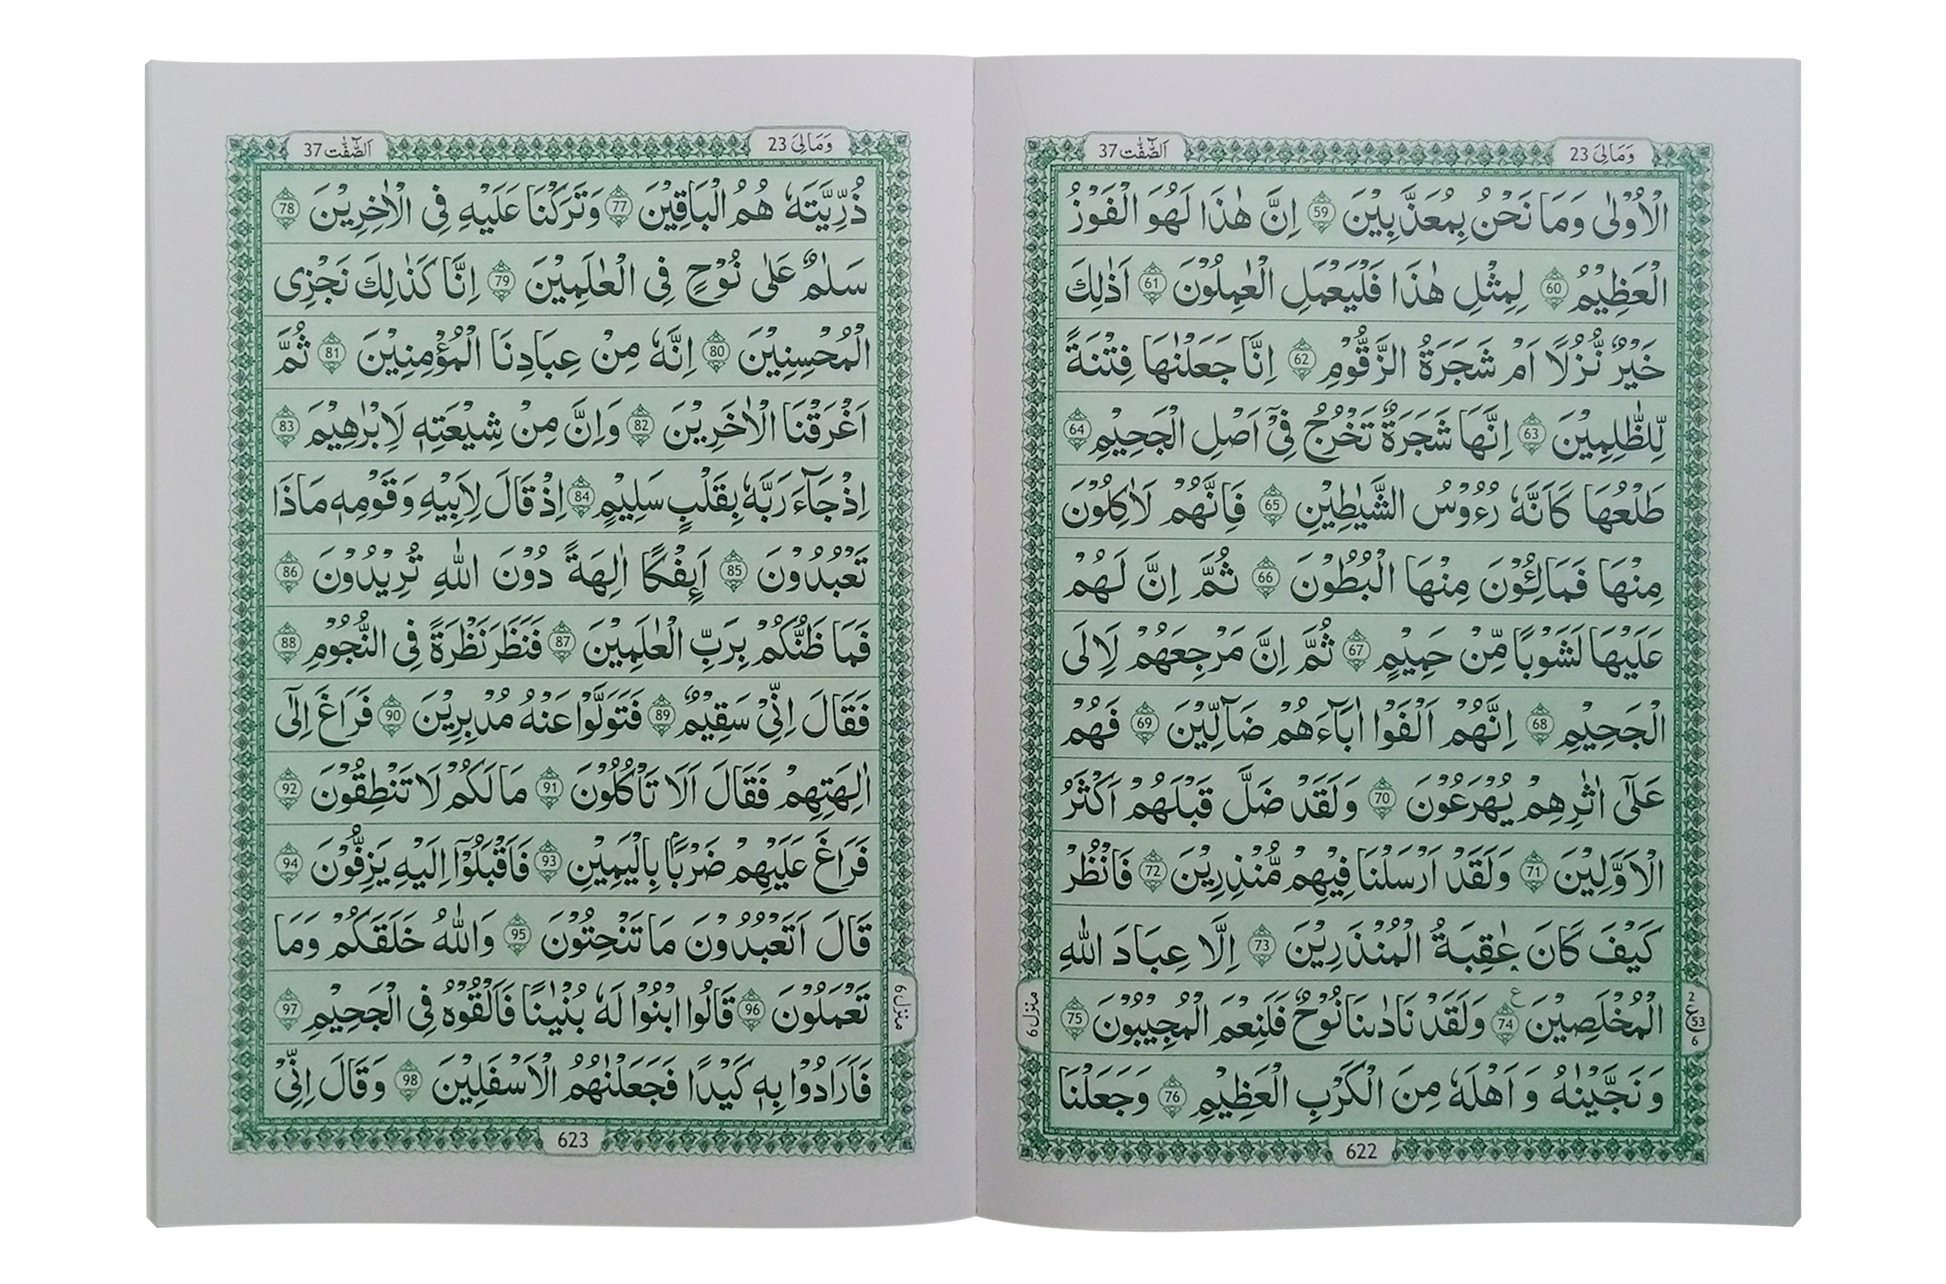 وَمَالِیَ 23
اَلصّٰٓفّٰت 37
الْاُوْلٰى وَمَا نَحْنُ بِمُعَذَّبِيْنَ 59 اِنَّ هٰذَا لَهُوَ الْفَوْزُ
الْعَظِيْمُ 60 لِمِثْلِ هٰذَا فَلْيَعْمَلِ الْعٰمِلُوْنَ 61 اَذٰلِكَ
خَيْرٌ نُّزُلًا اَمْ شَجَرَةُ الزَّقُّوْمِ 62 اِنَّا جَعَلْنٰهَا فِتْنَةً
لِّلظّٰلِمِيْنَ 63 اِنَّهَا شَجَرَةٌ تَخْرُجُ فِىْٓ اَصْلِ الْجَحِيْمِ 64
طَلْعُهَا كَاَنَّهٗ رُءُوْسُ الشَّيٰطِيْنِ 65 فَاِنَّهُمْ لَاٰكِلُوْنَ
مِنْهَا فَمَالِـُٔوْنَ مِنْهَا الْبُطُوْنَ 66 ثُمَّ اِنَّ لَهُمْ
عَلَيْهَا لَشَوْبًا مِّنْ حَمِيْمٍ 67 ثُمَّ اِنَّ مَرْجِعَهُمْ لَاِلَى
الْجَحِيْمِ 68 اِنَّهُمْ اَلْفَوْا اٰبَآءَهُمْ ضَآلِّيْنَ 69 فَهُمْ
عَلٰٓى اٰثٰرِهِمْ يُهْرَعُوْنَ 70 وَلَقَدْ ضَلَّ قَبْلَهُمْ اَكْثَرُ
الْاَوَّلِيْنَ 71 وَلَقَدْ اَرْسَلْنَا فِيْهِمْ مُّنْذِرِيْنَ 72 فَانْظُرْ
كَيْفَ كَانَ عٰقِبَةُ الْمُنْذَرِيْنَ 73 اِلَّا عِبَادَ اللّٰهِ
الْمُخْلَصِيْنَ 74 ع وَلَقَدْ نَادٰىنَا نُوْحٌ فَلَنِعْمَ الْمُجِيْبُوْنَ 75
وَنَجَّيْنٰهُ وَاَهْلَهٗ مِنَ الْكَرْبِ الْعَظِيْمِ 76 وَجَعَلْنَا
2
ع 53
6
منزل 6
622
وَمَالِیَ 23
اَلصّٰٓفّٰت 37
ذُرِّيَّتَهٗ هُمُ الْبَاقِيْنَ 77 وَتَرَكْنَا عَلَيْهِ فِى الْاٰخِرِيْنَ 78
سَلٰمٌ عَلٰى نُوْحٍ فِى الْعٰلَمِيْنَ 79 اِنَّا كَذٰلِكَ نَجْزِى
الْمُحْسِنِيْنَ 80 اِنَّهٗ مِنْ عِبَادِنَا الْمُؤْمِنِيْنَ 81 ثُمَّ
اَغْرَقْنَا الْاٰخَرِيْنَ 82 وَاِنَّ مِنْ شِيْعَتِهٖ لَاِبْرٰهِيْمَ 83
اِذْ جَآءَ رَبَّهٗ بِقَلْبٍ سَلِيْمٍ 84 اِذْ قَالَ لِاَبِيْهِ وَقَوْمِهٖ مَاذَا
تَعْبُدُوْنَ 85 اَئِفْكًا اٰلِهَةً دُوْنَ اللّٰهِ تُرِيْدُوْنَ 86
فَمَا ظَنُّكُمْ بِرَبِّ الْعٰلَمِيْنَ 87 فَنَظَرَ نَظْرَةً فِى النُّجُوْمِ 88
فَقَالَ اِنِّىْ سَقِيْمٌ 89 فَتَوَلَّوْا عَنْهُ مُدْبِرِيْنَ 90 فَرَاغَ اِلٰٓى
اٰلِهَتِهِمْ فَقَالَ اَلَا تَاْكُلُوْنَ 91 مَا لَكُمْ لَا تَنْطِقُوْنَ 92
فَرَاغَ عَلَيْهِمْ ضَرْبًۢا بِالْيَمِيْنِ 93 فَاَقْبَلُوْٓا اِلَيْهِ يَزِفُّوْنَ 94
قَالَ اَتَعْبُدُوْنَ مَا تَنْحِتُوْنَ 95 وَاللّٰهُ خَلَقَكُمْ وَمَا
تَعْمَلُوْنَ 96 قَالُوا ابْنُوْا لَهٗ بُنْيٰنًا فَاَلْقُوْهُ فِى الْجَحِيْمِ 97
فَاَرَادُوْا بِهٖ كَيْدًا فَجَعَلْنٰهُمُ الْاَسْفَلِيْنَ 98 وَقَالَ اِنِّىْ
منزل 6
623